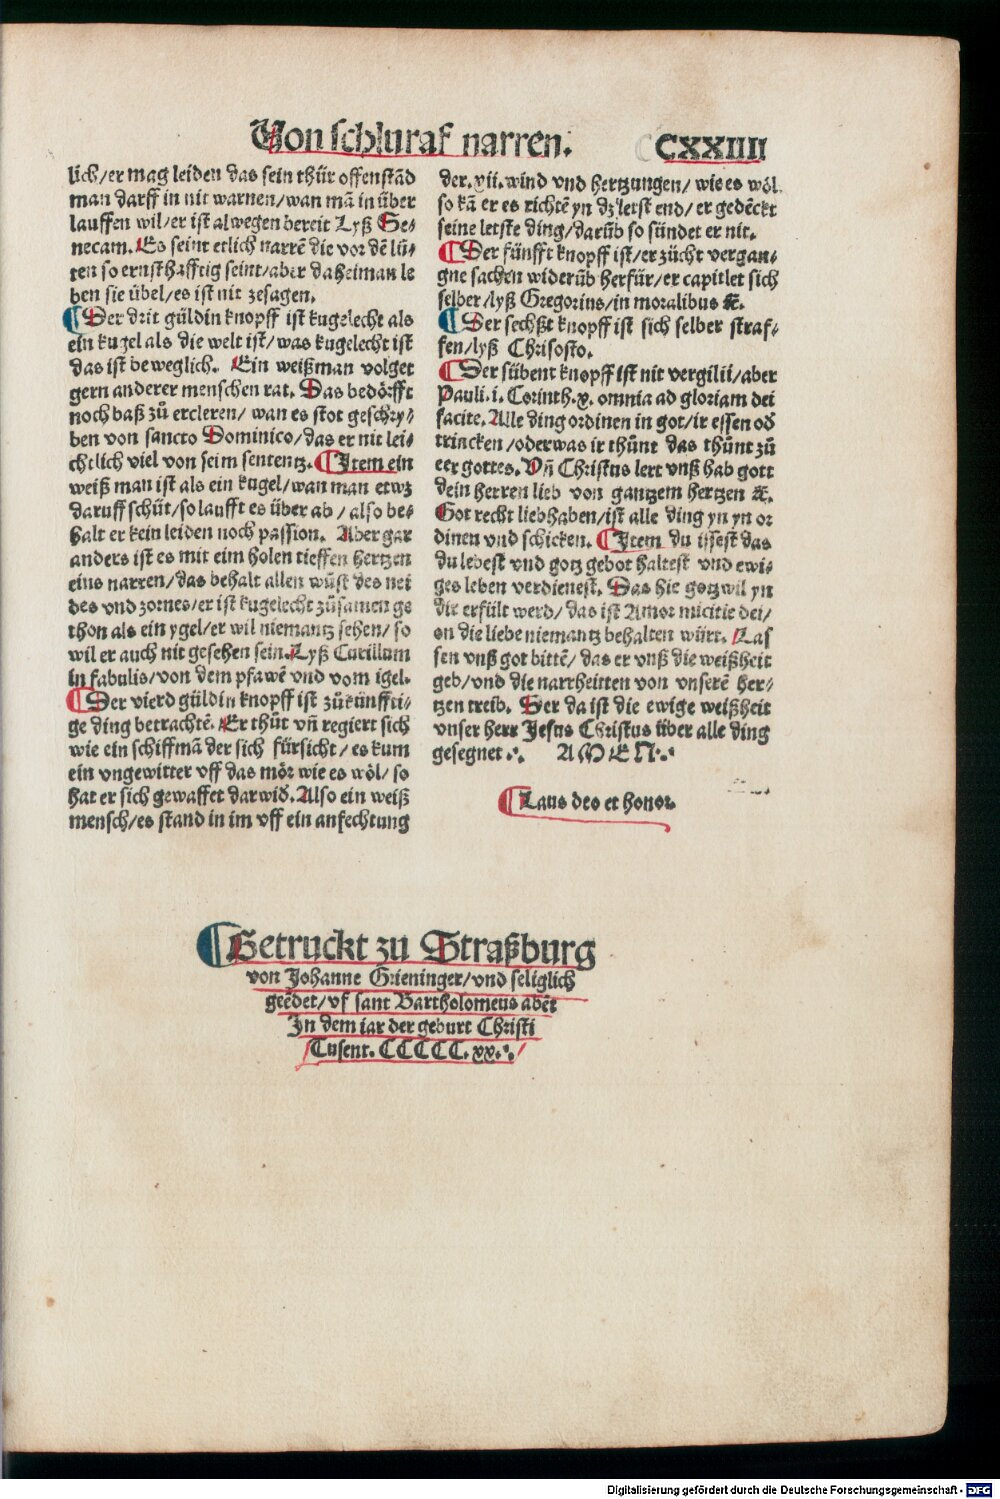 Von schluraf narren.
CXXIIII
lich/er mag leiden das sein thür offenstād
man darff in nit warnen/wan mā in über
lauffen wil/er ist alwegen bereit Lyß Se⸗
necam. Es seint etlich narrē die vor dē lü⸗
ten so ernsthafftig seint/aber daheiman le
ben sie übel/es ist nit zesagen.
¶Der drit güldin knopff ist kugelecht als
ein kugel als die welt ist/was kugelecht ist
das ist beweglich. Ein weißman volget
gern anderer menschen rat. Das bedörfft
noch baß zů ercleren/wan es stot geschry⸗
ben von sancto Dominico/das er nit lei⸗
chtlich viel von seim sententz. ¶Item ein
weiß man ist als ein kugel/wan man etwz
daruff schüt/so laufft es über ab/also be⸗
halt er kein leiden noch passion. Aber gar
anders ist es mit eim holen tieffen hertzen
eins narren/das behalt allen wůst des nei
des vnd zornes/er ist kugelecht zůsamen ge
thon als ein ygel/er wil niemantz sehen/so
wil er auch nit gesehen sein. Lyß Curillum
in fabulis/von dem pfawē vnd vom igel.
¶Der vierd güldin knopff ist zůkünffti⸗
ge ding betrachtē. Er thüt vñ regiert sich
wie ein schiffmā der sich fürsicht/es kum
ein vngewitter vff das mör wie es wöl/so
hat er sich gewaffet darwid. Also ein weiß
mensch/es stand in im vff ein anfechtung
der.xii.wind vnd hertzungen/wie es wöl
so kā er es richtē yn dz letst end/er gedēckt
seine letste ding/darūb so sündet er nit.
¶Der fünfft knopff ist/er zücht vergan⸗
gne sachen widerūb herfür/er capitlet sich
selber/lyß Gregorius/in moralibus ꝛc.
¶Der sechßt knopff ist sich selber straf⸗
fen/lyß Chrisosto.
¶Der sübent knopff ist nit vergilii/aber
Pauli.i.Corinth.x. omnia ad gloriam dei
facite. Alle ding ordinen in got/ir essen od
trincken/oder was ir thünt das thünt zů
eer gottes. Vñ Christus lert vnß hab gott
dein herren lieb von gantzem hertzen ꝛc.
Got recht liebhaben/ist alle ding yn yn or
dinen vnd schicken. ¶Item du issest das
du lebest vnd gotz gebot haltest vnd ewi⸗
ges leben verdienest. Das hie gotz wil yn
dir erfült werd/das ist Amor nicitie dei/
on die liebe niemantz behalten würt. Las
sen vnß got bittē/das er vnß die weißheit
geb/vnd die narrheitten von vnserē her⸗
tzen treib. Der da ist die ewige weißheit
vnser herr Jesus Christus über alle ding
gesegnet. AMEN.
¶Laus deo et honor.
¶Getruckt zu Straßburg
von Johanne Grieninger/vnd seliglich
geēdet/vf sant Bartholomeus abēt
In dem iar der geburt Christi
Tusent. CCCCC.xx.
Digitalisierung gefördert durch die Deutsche Forschungsgemeinschaft - DFG